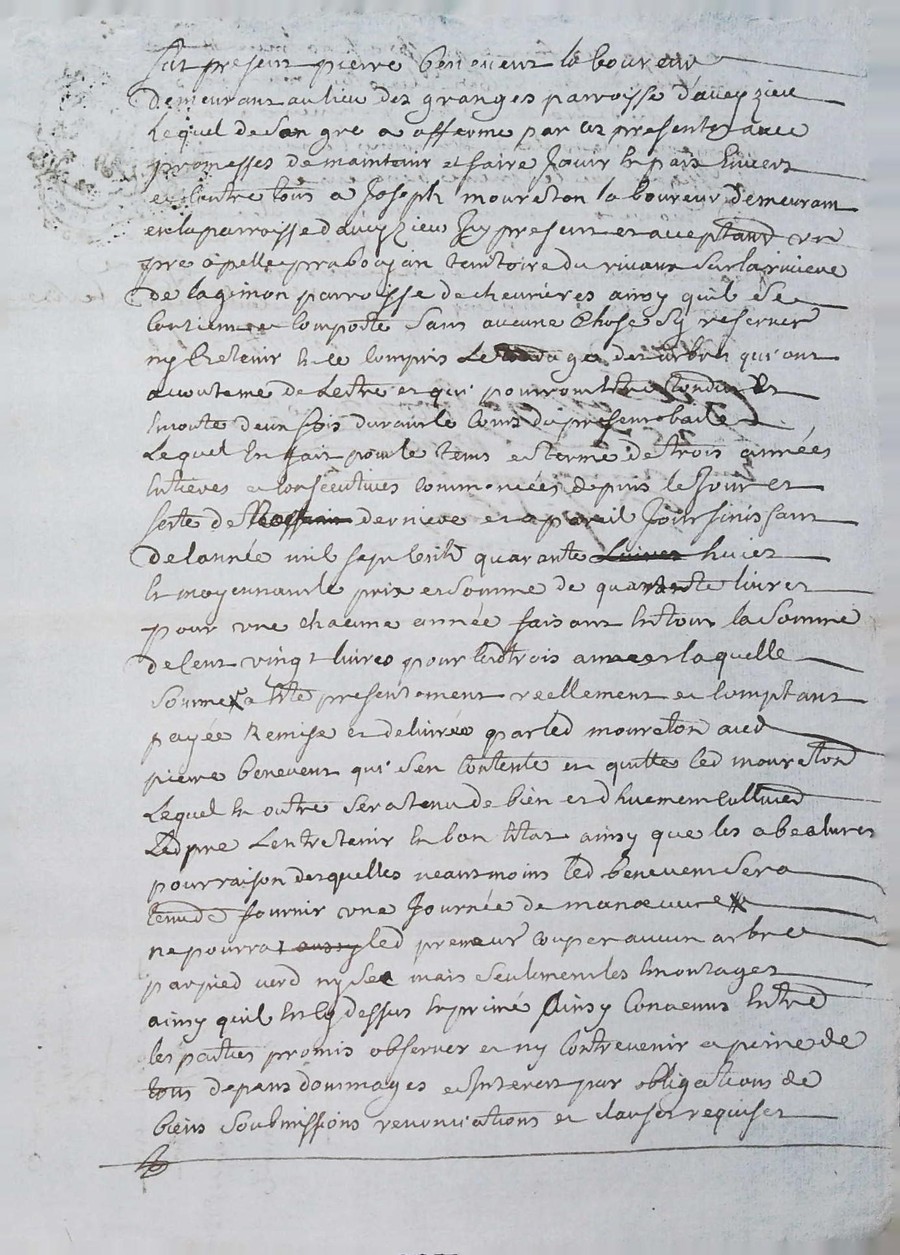 fut present pierre benevent laboureur
demeurant au lieu des granges parroisse d'aveyzieu
Lequel de son gré a affermé par ces presentes avec
promesses de maintenir et faire Jouir en paix Envers
et Contre tous a Joseph moureton laboureur demeurant
en la parroisse d'aveyzieu Icy present et acceptant un
pré apellé praboujan territoire du rivaux sur la riviere
de lagimon parroisse de chevrieres ainsy quil se
Contient et Comporte sans aucune Chose sy reserver
ny Retenir en ce Compris Les des arbres qui ont
accoutumé de Lestre et qui pourront être
Emonté d'eux fois durant le Cours du present bail
Lequel En fait pour le tems et terme de trois années
Entieres et Consecutives Commencées depuis le Jour et
feste de derniere et a pareil Jour finissant
de lannée mil sept Cents quarante huict
Et moyennant le prix et somme de quarante livres
pour une chacune année faisant En tout la somme
de Cent vingt livres pour lesd trois années laquelle
somme a été presentement reellement et Comptant
payée Remise et delivrée par led moureton aud
pierre benevent qui s'en Contente et quitte led moureton
Lequel En outre sera tenu de bien et dhuement Cultiver
Led pré Lentretenir En bon Etat ainsy que les abealures
pour raison desquelles neantmoins led benevent sera
tenu de fournir une Journée de manoeuvre
ne pourra led preneur Couper aucun arbre
par pied verd ny sec mais seulement les Emontages
ainsy quil En Cy dessus Exprimé Ainsy Convenus Entre
les parties promis observer et ny Contrevenir a peine de
tous depans dommages et Interets par obligations de
biens soubmissions renonciations et clauses requises